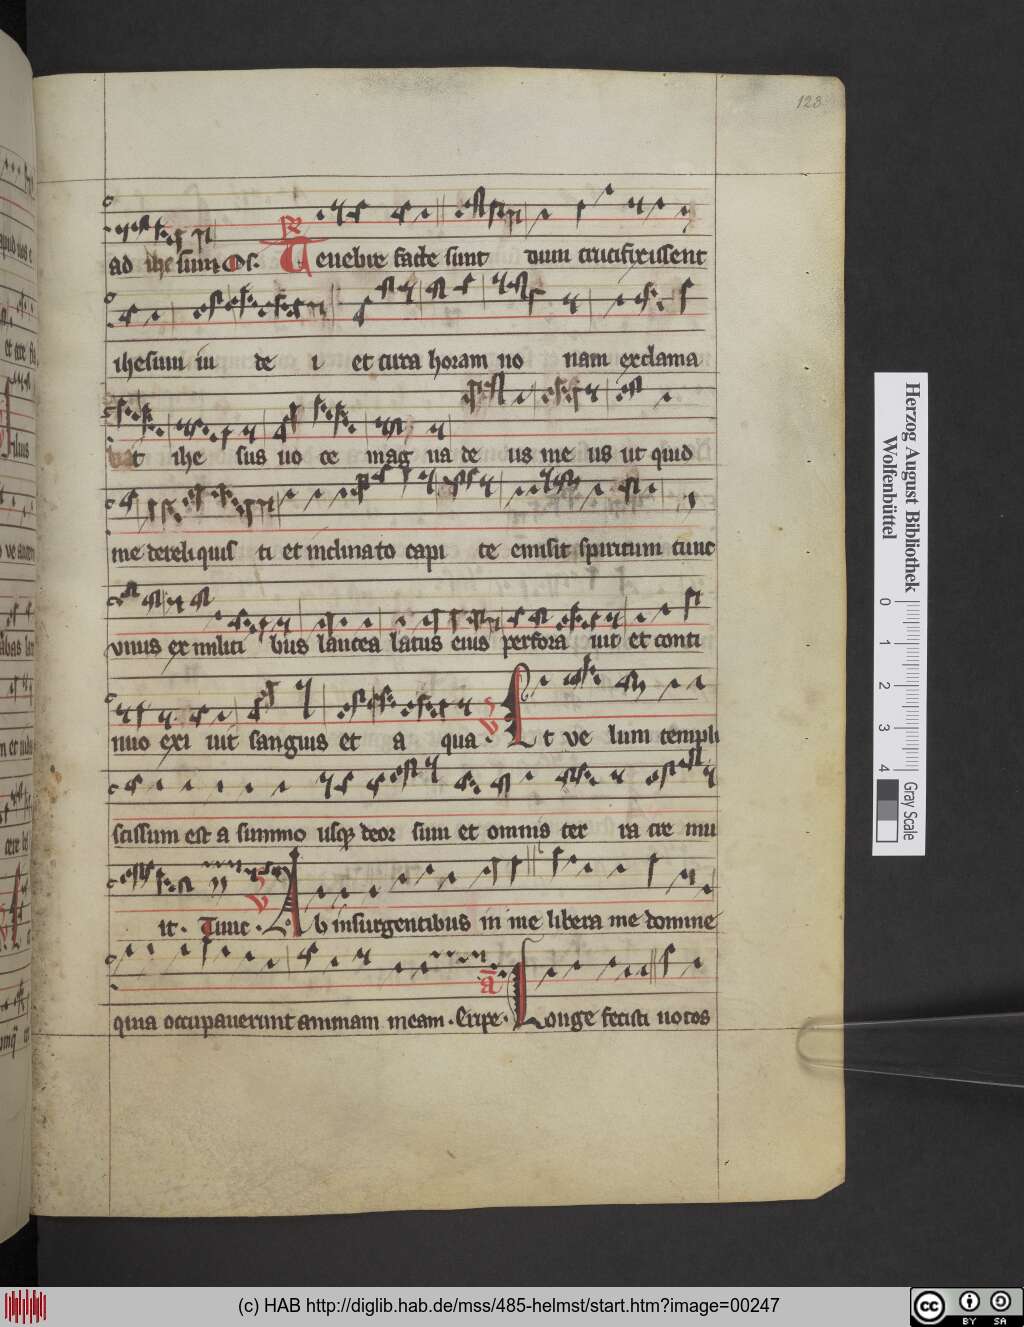 123
ad ihesum Os. R Tenebre facte sunt dum crucifixissent
ihesum iu de i et circa horam no nam exclama
vit ihe sus uo ce mag na de us me us ut quid
me dereliquis ti et inclinato capi te emisit spiritum tunc
unus ex militi bus lancea latus eius perfora uit et conti
nuo exi uit sanguis et a qua. V Et ve lum templi
scissum est a summo usq deor sum et omnis ter ra tre mu
it. Tunc. V Ab insurgentibus in me libera me domine
quia occupauerunt animam meam. Eripe. a Longe fecisti notos
Herzog August Bibliothek
Wolfenbüttel
0 1 2 3 4
Gray Scale
(c) HAB http://diglib.hab.de/mss/485-helmst/start.htm?image=00247
cc BY SA